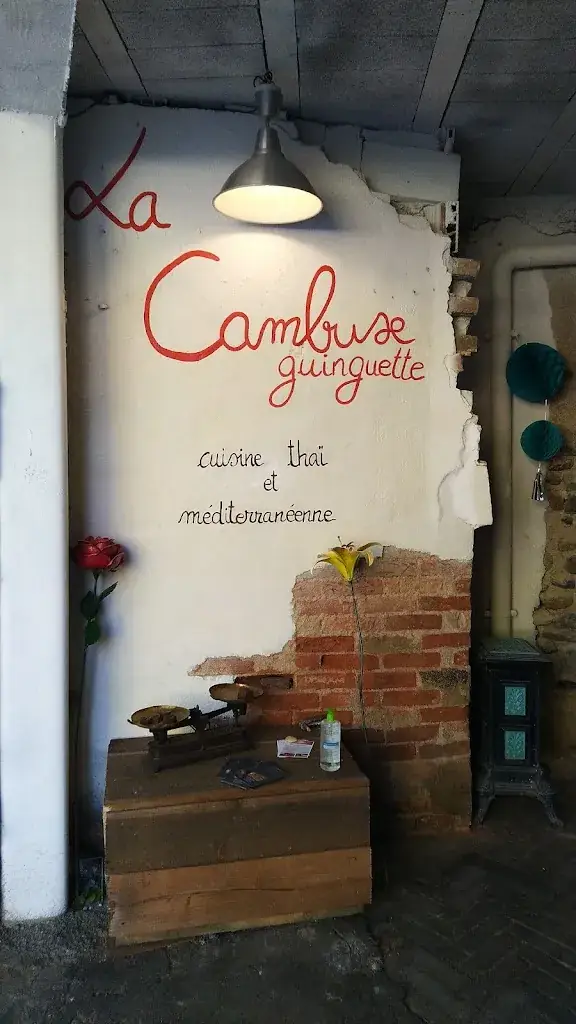 La
Cambuse
guinguette
cuisine thaï
et
méditerranéenne